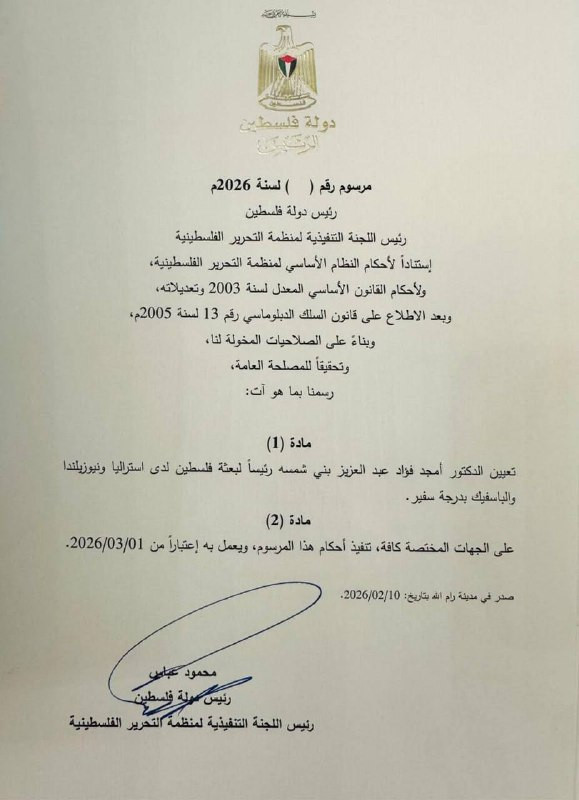 فلسطين
دولة فلسطين
الرئيس
مرسوم رقم (    ) لسنة 2026م
رئيس دولة فلسطين
رئيس اللجنة التنفيذية لمنظمة التحرير الفلسطينية
إستناداً لأحكام النظام الأساسي لمنظمة التحرير الفلسطينية،
ولأحكام القانون الأساسي المعدل لسنة 2003 وتعديلاته،
وبعد الاطلاع على قانون السلك الدبلوماسي رقم 13 لسنة 2005م،
وبناءً على الصلاحيات المخولة لنا،
وتحقيقاً للمصلحة العامة،
رسمنا بما هو آت:
مادة (1)
تعيين الدكتور أمجد فؤاد عبد العزيز بني شمسه رئيساً لبعثة فلسطين لدى استراليا ونيوزيلندا
والباسفيك بدرجة سفير.
مادة (2)
على الجهات المختصة كافة، تنفيذ أحكام هذا المرسوم، ويعمل به إعتباراً من 2026/03/01.
صدر في مدينة رام الله بتاريخ: 2026/02/10.
محمود عباس
رئيس دولة فلسطين
رئيس اللجنة التنفيذية لمنظمة التحرير الفلسطينية